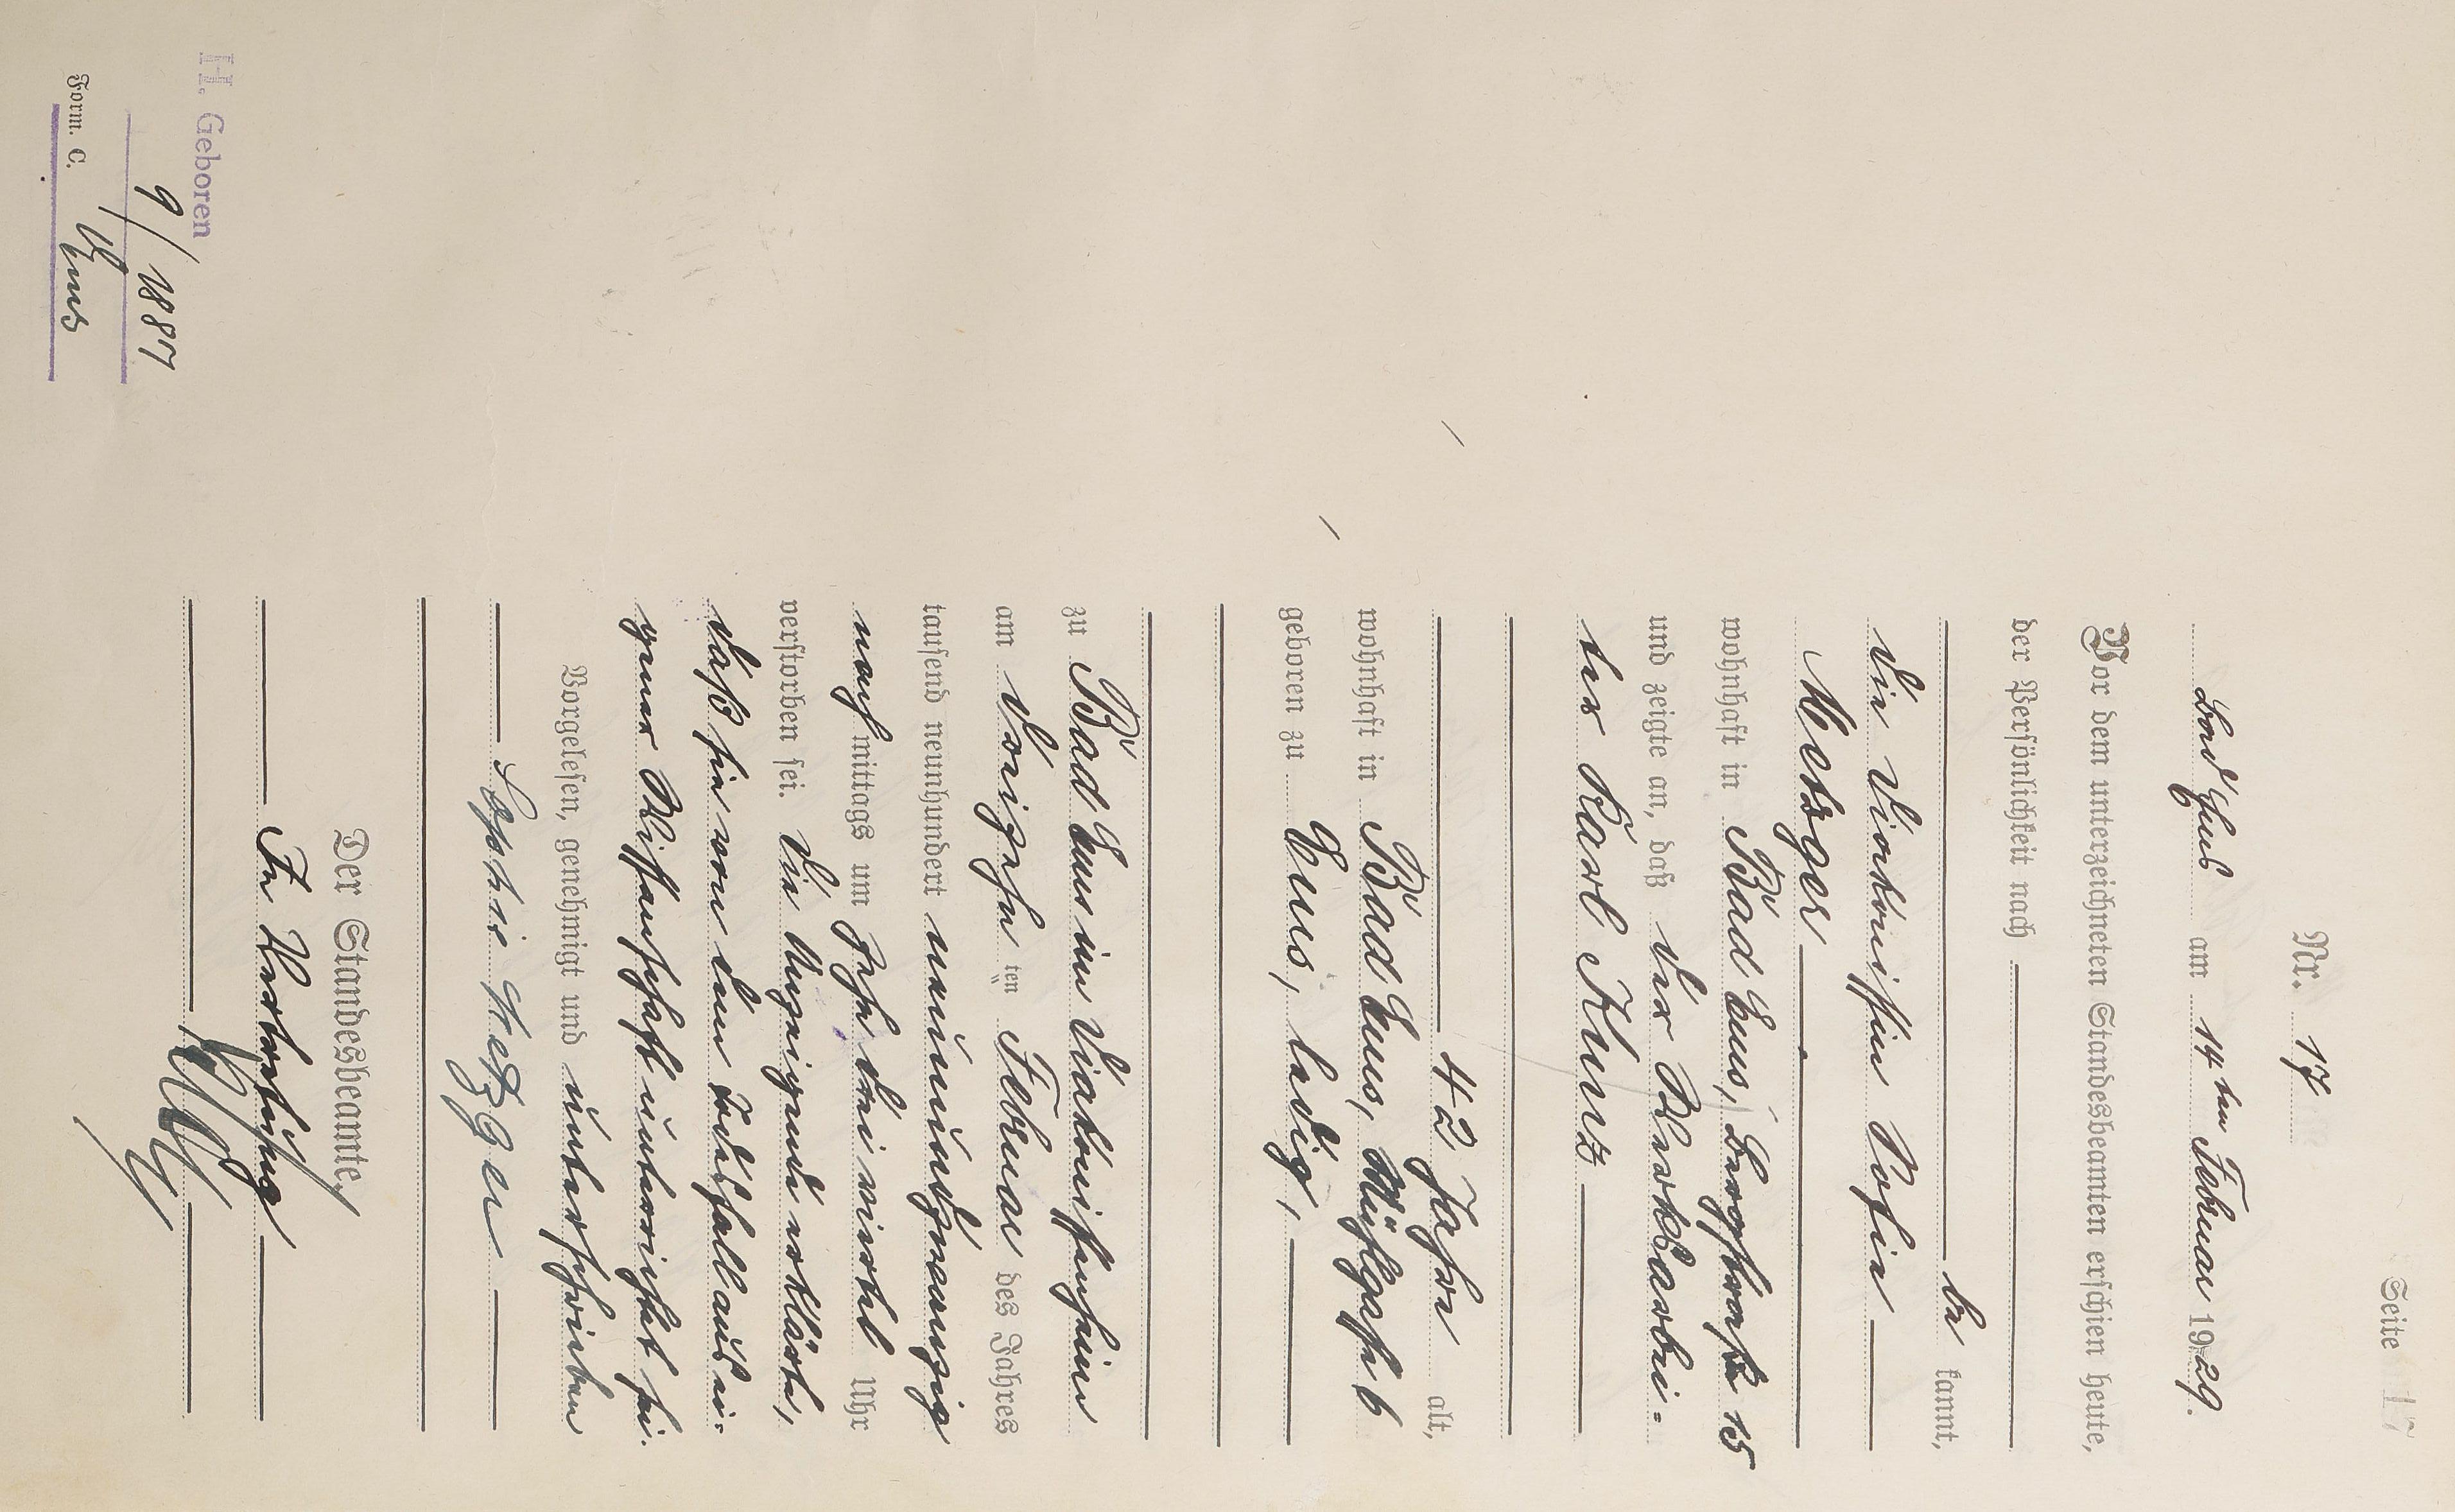 Seite 17
Nr. 17
Bad Ems am 14ten Februar 1929.
Vor dem unterzeichneten Standesbeamten erschien heute,
der Persönlichkeit nach
be kannt,
die Diakonissin Sofie
Metzger
wohnhaft in Bad Ems, Bergstraße 15
und zeigte an, daß der Werkarbei=
ter Karl Kunz
42 Jahre alt,
wohnhaft in Bad Ems, Mühlgasse 6
geboren zu Ems, ledig,
zu Bad Ems im Diakonissenheim
am dreizehn ten Februar des Jahres
tausend neunhundert neunundzwanzig
nach mittags um sechs drei viertel Uhr
verstorben sei. Die Anzeigende erklärte,
daß sie von dem Todesfall aus ei=
gener Wissenschaft unterrichtet sei.
Vorgelesen, genehmigt und unterschrieben
Sophie Metzger
Der Standesbeamte.
In Vertretung
H. Geboren
9/1887
Form. C. Ems